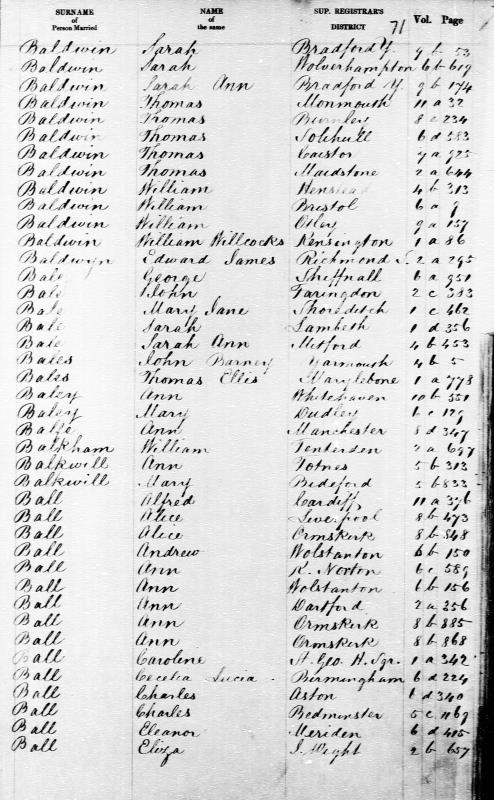 SURNAME of Person Married NAME of the same SUP. REGISTRAR'S DISTRICT 71 Vol. Page
Baldwin Sarah Bradford Y. 9 b 53
Baldwin Sarah Wolverhampton 6 b 619
Baldwin Sarah Ann Bradford Y. 9 b 174
Baldwin Thomas Monmouth 11 a 32
Baldwin Thomas Burnley 8 e 234
Baldwin Thomas Solihull 6 d 583
Baldwin Thomas Caistor 7 a 925
Baldwin Thomas Maidstone 2 a 644
Baldwin William Henstead 4 b 313
Baldwin William Bristol 6 a 9
Baldwin William Otley 9 a 157
Baldwin William Willcocks Kensington 1 a 86
Baldwyn Edward James Richmond S. 2 a 295
Bale George Shiffnall 6 a 951
Bale John Faringdon 2 c 383
Bale Mary Jane Shoreditch 1 c 462
Bale Sarah Lambeth 1 d 356
Bale Sarah Ann Mitford 4 b 453
Bales John Barney Yarmouth 4 b 5
Bales Thomas Ellis Marylebone 1 a 778
Baley Ann Whitehaven 10 b 551
Baley Mary Dudley 6 c 129
Balfe Ann Manchester 8 d 347
Balkham William Tenterden 2 a 697
Balkwill Ann Totnes 5 b 313
Balkwill Mary Bideford 5 b 833
Ball Alfred Cardiff 11 a 376
Ball Alice Liverpool 8 b 473
Ball Alice Ormskirk 8 b 848
Ball Andrew Wolstanton 6 b 150
Ball Ann K. Norton 6 c 589
Ball Ann Wolstanton 6 b 156
Ball Ann Dartford 2 a 256
Ball Ann Ormskirk 8 b 885
Ball Ann Ormskirk 8 b 868
Ball Caroline St. Geo. H. Sqr. 1 a 342
Ball Cecelia Lucia Birmingham 6 d 224
Ball Charles Aston 6 d 340
Ball Charles Bedminster 5 c 1169
Ball Eleanor Meriden 6 d 415
Ball Eliza I. Wight 2 b 657